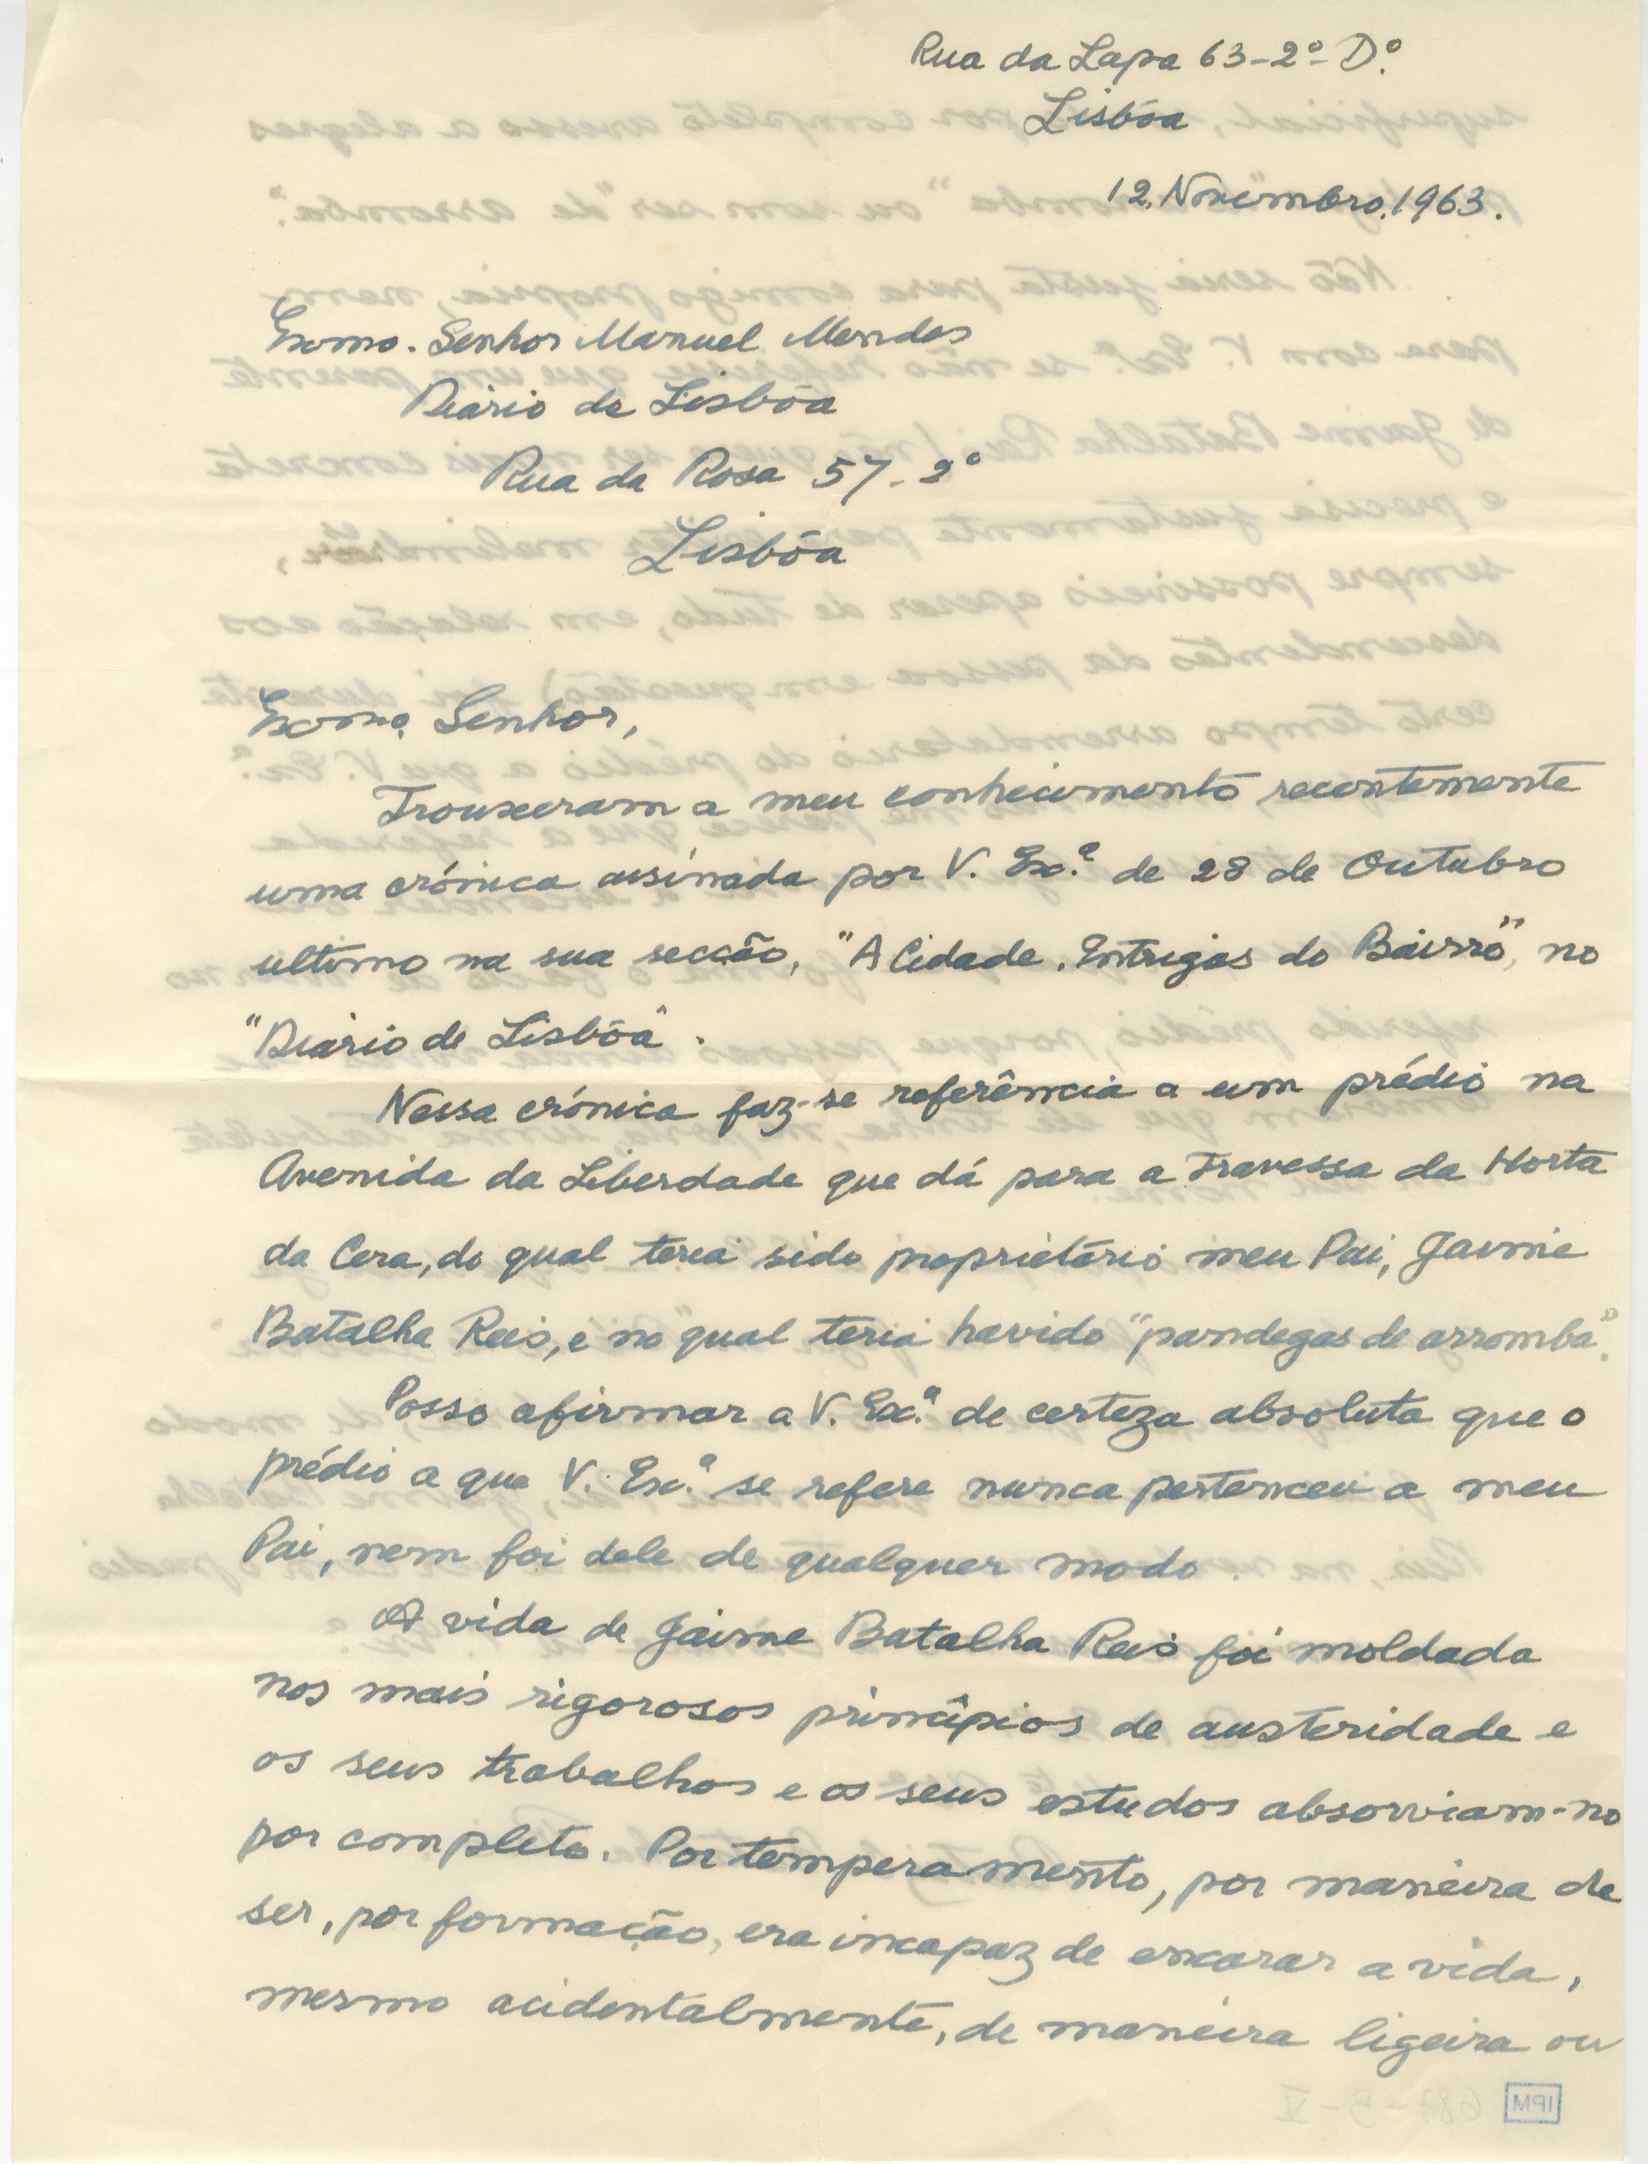 Rua da Lapa 63-2º Dº.
Lisbôa
12. Novembro. 1963.
Exomo. Senhor Manuel Mendes
Diário de Lisbôa
Rua da Rosa 57-2º
Lisbôa
Exomo. Senhor,
Trouxeram a meu conhecimento, recentemente
uma crónica assinada por V. Exª. de 28 de Outubro
ultimo na sua secção, "A Cidade. Intrigas do Bairro", no
"Diário de Lisbôa".
Nessa crónica faz-se referência a um prédio na
Avenida da Liberdade que dá para a Travessa da Horta
da Cera, do qual teria sido proprietário meu Pai, Jaime
Batalha Reis, e no qual teria havido "pandegas de arromba".
Posso afirmar a V. Exª. de certeza absoluta que o
prédio a que V. Exª. se refere nunca pertenceu a meu
Pai, nem foi dele de qualquer modo.
A vida de Jaime Batalha Reis foi moldada
nos mais rigorosos princípios de austeridade e
os seus trabalhos e os seus estudos absorviam-no
por completo. Por temperamento, por maneira de
ser, por formação, era incapaz de encarar a vida,
mesmo acidentalmente, de maneira ligeira ou
IPM